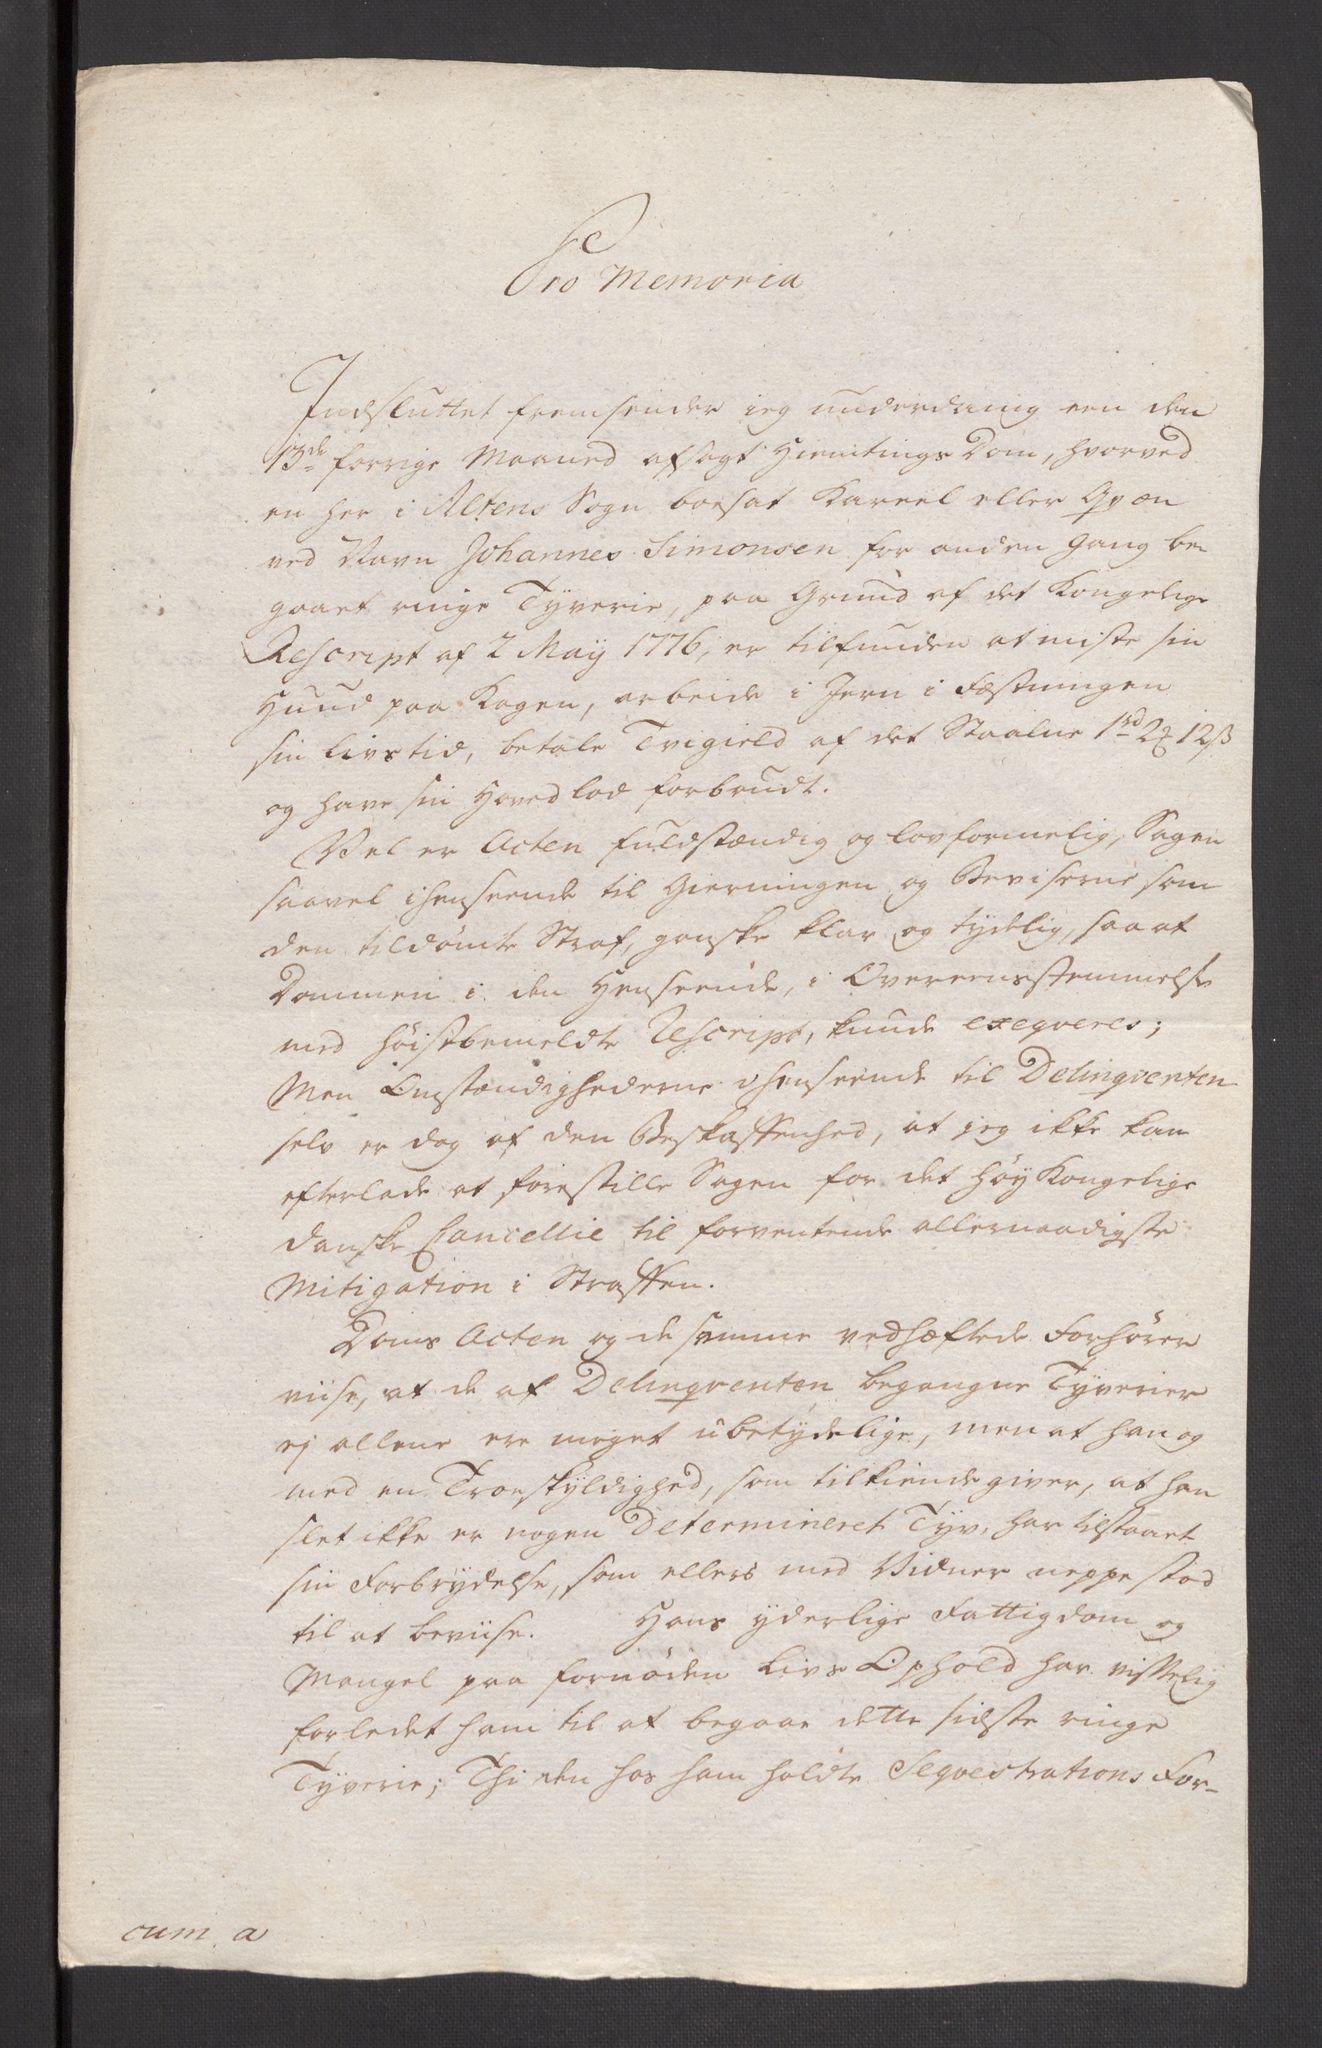 Pro Memoria
Indsluttet fremsender jeg underdanig een den
13de forrige Maaned afsagt Hiemtings Dom, hvorved
en her i Altens Sogn boesat Kareel eller Qvæn
ved Navn Johannes Simonsen for anden Gang be
gaaet ringe Tyverie, paa Grund af det Kongelige
Rescript af 2 Maÿ 1776, er tilfunden at miste sin
Huud paa Kagen, arbeide i Jern i Fæstningen
sin Livs tid, betale Tvigield af det Staalne 1rd 2 12ß
og have sin Hoved lod forbrudt.
Vel er Acten fuldstændig og lovformelig, Sagen
saavel i henseende til Gierningen og Beviserne som
den tildømte Straf, ganske klar og tydelig, saa at
Dommen i den Henseende, i Overeensstemmelse
med høistbemeldte Rescript, kunde exeqveres;
Men Omstændighederne i henseende til Delinqventen
selv er dog af den Beskaffenhed, at jeg ikke kan
efterlade at forestille Sagen for det Høy Kongelige
danske Cancellie til forventende allernaadigste
Mitigation i Straffen.
Doms Acten og de samme vedhæftede Forhører
viise, at de af Delinqventen begangne Tyverier
ej allene ere meget ubetÿdelige, men at han og
med en Troeskÿldighed, som tilkiendegiver, at han
slet ikke er nogen Determineret Tÿv, har tilstaaet
sin Forbrÿdelse, som ellers med Vidner neppe stod
til at beviise. Hans ÿderlige Fattigdom og
Mangel paa fornøden Livs Ophold har visselig
forledet ham til at begaae dette sidste ringe
Tÿverie; Thi den hos ham holdte Seqvestrations For-
cum a